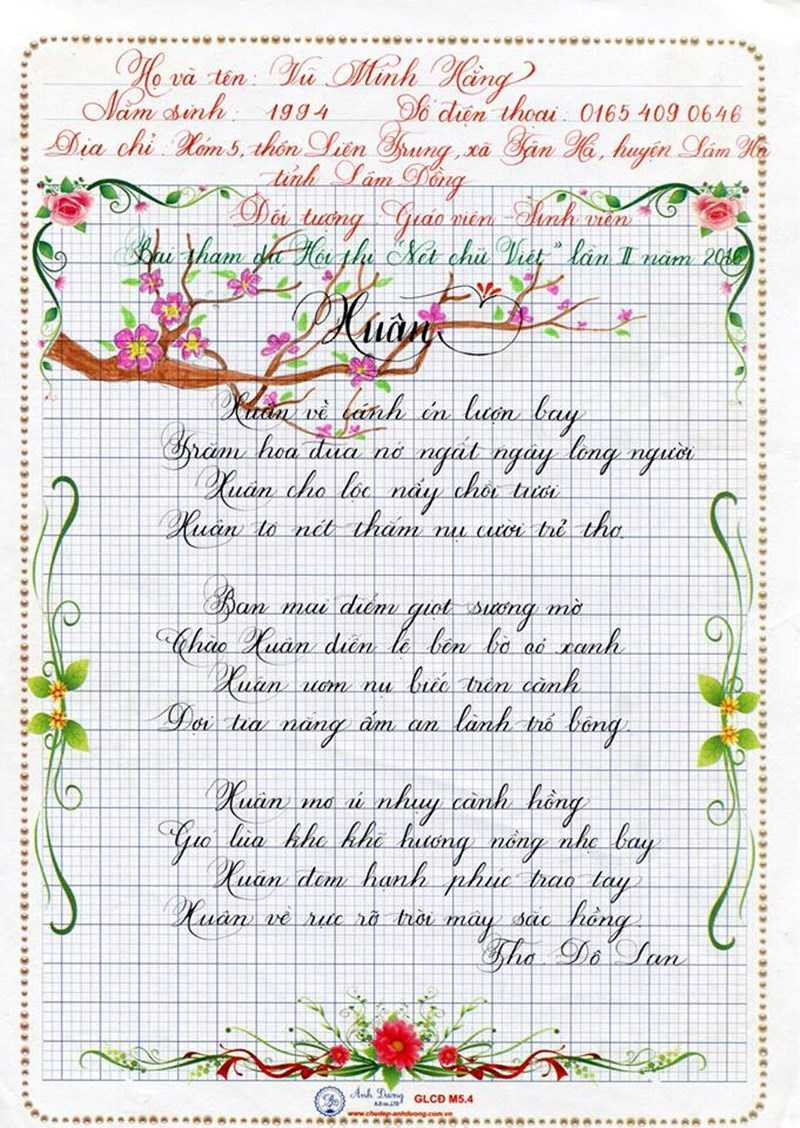 Họ và tên: Vũ Minh Hằng
Năm sinh: 1994 Số điện thoại: 0165 409 0646
Địa chỉ: Xóm 5, thôn Liên Trung, xã Tân Hà, huyện Lâm Hà
tỉnh Lâm Đồng
Đối tượng: Giáo viên - Sinh viên
Bài tham dự Hội thi "Nét chữ Việt" lần II năm 2016
Xuân
Xuân về cánh én lượn bay
Trăm hoa đua nở ngất ngây lòng người
Xuân cho lộc nẩy chồi tươi
Xuân tô nét thắm nụ cười trẻ thơ.
Ban mai điểm giọt sương mờ
Chào Xuân diễn lệ bên bờ cỏ xanh
Xuân ươm nụ biếc trên cành
Đợi tia nắng ấm an lành trổ bông.
Xuân mơ ủ nhụy cành hồng
Gió lùa khe khẽ hương nồng nhẹ bay
Xuân đem hạnh phúc trao tay
Xuân về rực rỡ trời mây sắc hồng.
Thơ: Đỗ Lan
Ánh Dương
GLCĐ M5.4
www.chudep-anhduong.com.vn